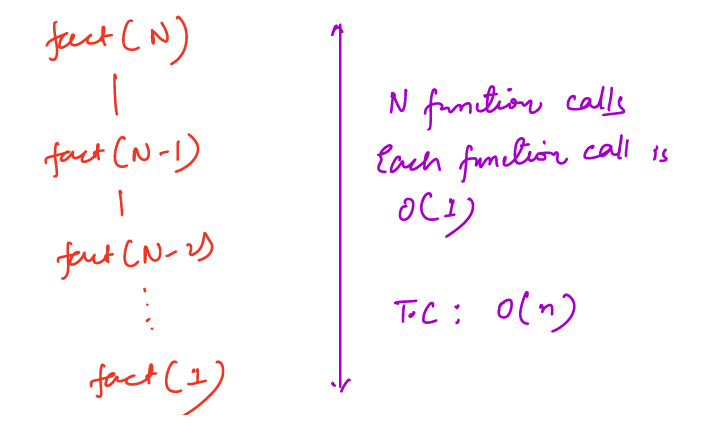 fact(N)
fact(N-1)
fact(N-2)
fact(1)
N function calls
Each function call is
O(1)
T.C : O(n)